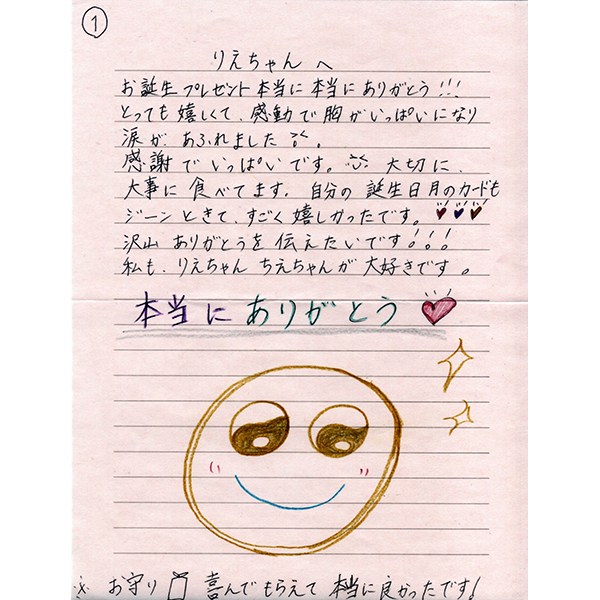 ①
りえちゃんへ
お誕生プレゼント本当に本当にありがとう!!!
とっても嬉しくて、感動で胸がいっぱいになり
涙があふれました。
感謝でいっぱいです。大切に、
大事に食べてます。自分の誕生日月のカードも
ジーンときて、すごく嬉しかったです。
沢山ありがとうを伝えたいです!!!
私も、りえちゃんちえちゃんが大好きです。
本当にありがとう
※お守り 喜んでもらえて本当に良かったです!